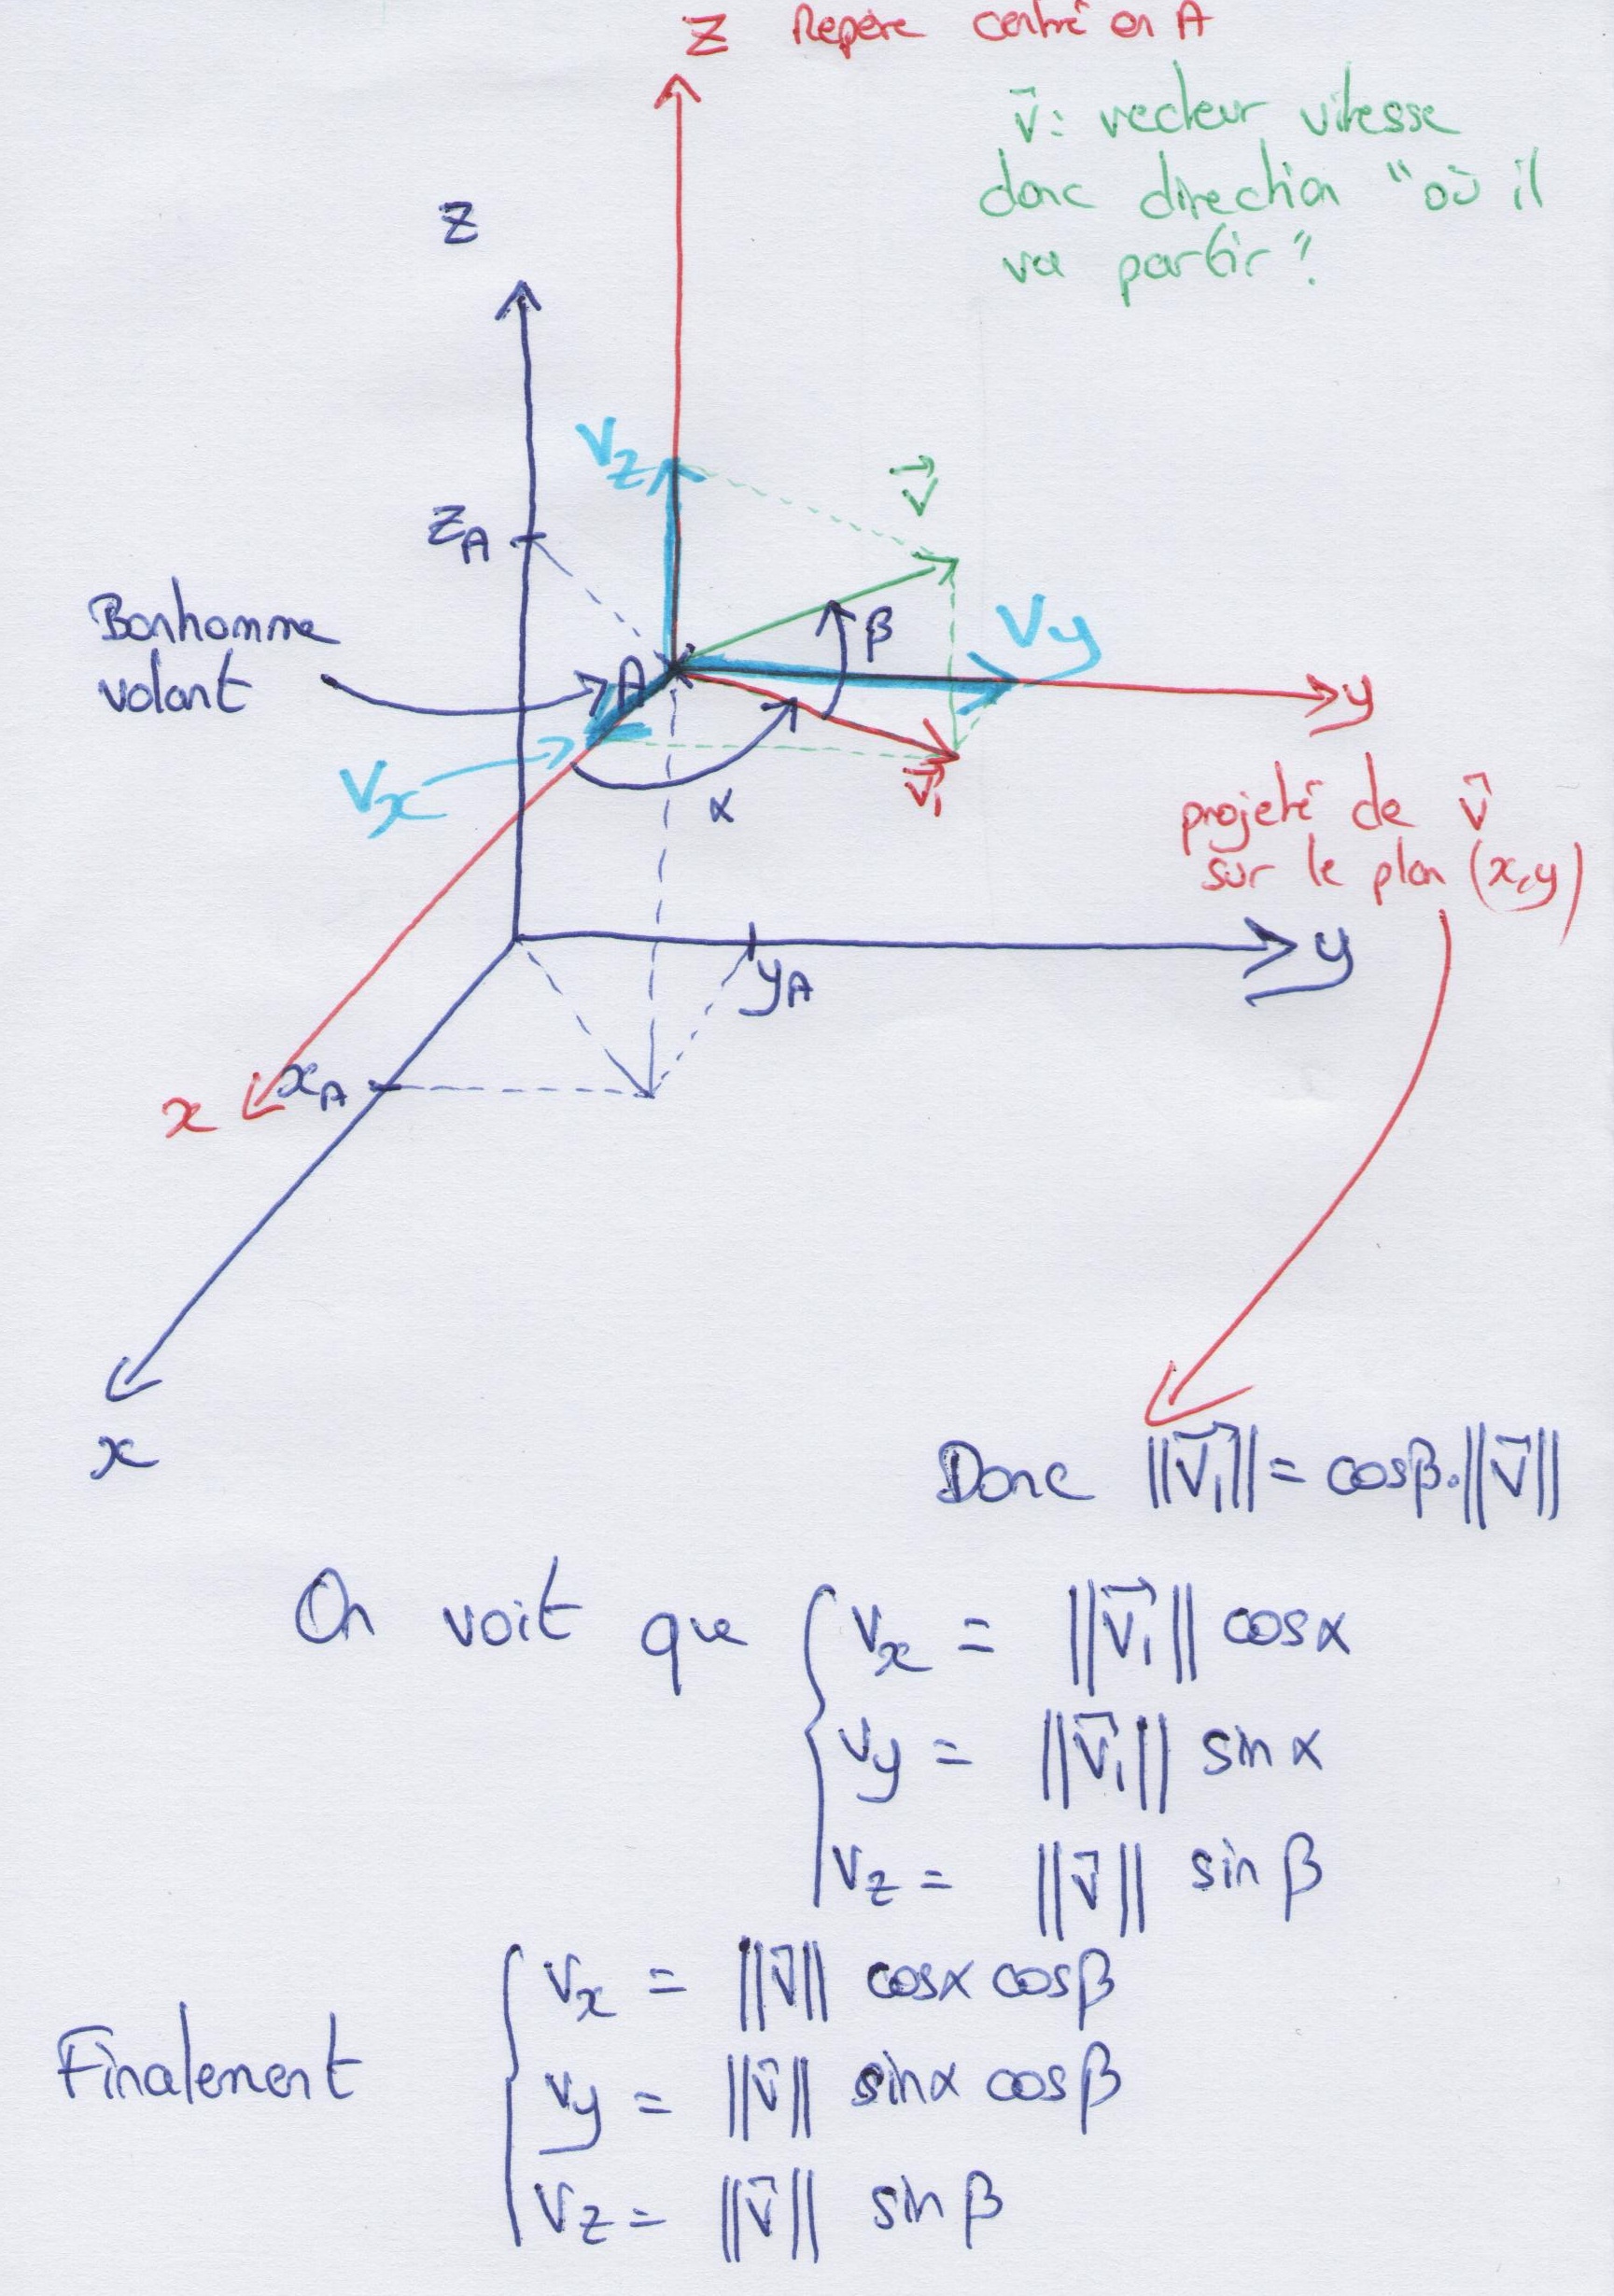 z Repère centré en A
v⃗ : vecteur vitesse
donc direction "où il
va partir".
z
Vz
v⃗
zA
β
Vy
Bonhomme
volant
A
y
Vx
α
v⃗₁
projeté de v⃗
sur le plan (x,y)
y
yA
xA
x
x
Donc ||v⃗₁|| = cosβ.||v⃗||
On voit que { vx = ||v⃗₁|| cosα
vy = ||v⃗₁|| sinα
vz = ||v⃗|| sinβ
Finalement { vx = ||v⃗|| cosα cosβ
vy = ||v⃗|| sinα cosβ
vz = ||v⃗|| sinβ